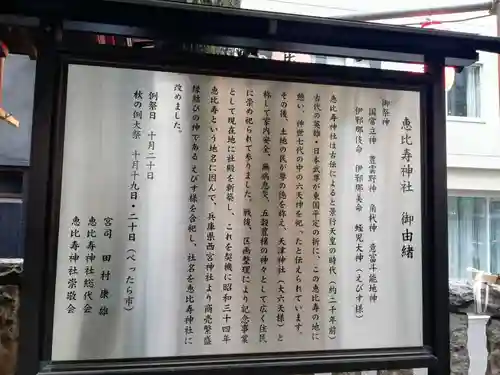 恵比寿神社 御由緒
御祭神
国常立神 豊雲野神 角杙神 意富斗能地神
伊邪那岐命 伊邪那美命 蛭児大神(えびす様)
恵比寿神社は古伝によると景行天皇の時代(約二千年前)
古代の英雄・日本武尊が東国平定の折に、この恵比寿の地に
憩い、神世七代の中の六天神を祀ったと伝えられています。
その後、土地の民が尊の徳を称え、天津神社(大六天様)と
称して家内安全、無病息災、五穀豊穣の神々として広く住民
に崇め祀られて参りました。戦後、区画整理により記念事業
として現在地に社殿を新築し、これを契機に昭和三十四年
恵比寿という地名に因んで、兵庫県西宮神社より商売繁盛
縁結びの神であるえびす様を合祀し、社名を恵比寿神社に
改めました。
例祭日 十月二十日
秋の例大祭 十月十九日・二十日(べったら市)
宮司 田村康雄
恵比寿神社総代会
恵比寿神社崇敬会